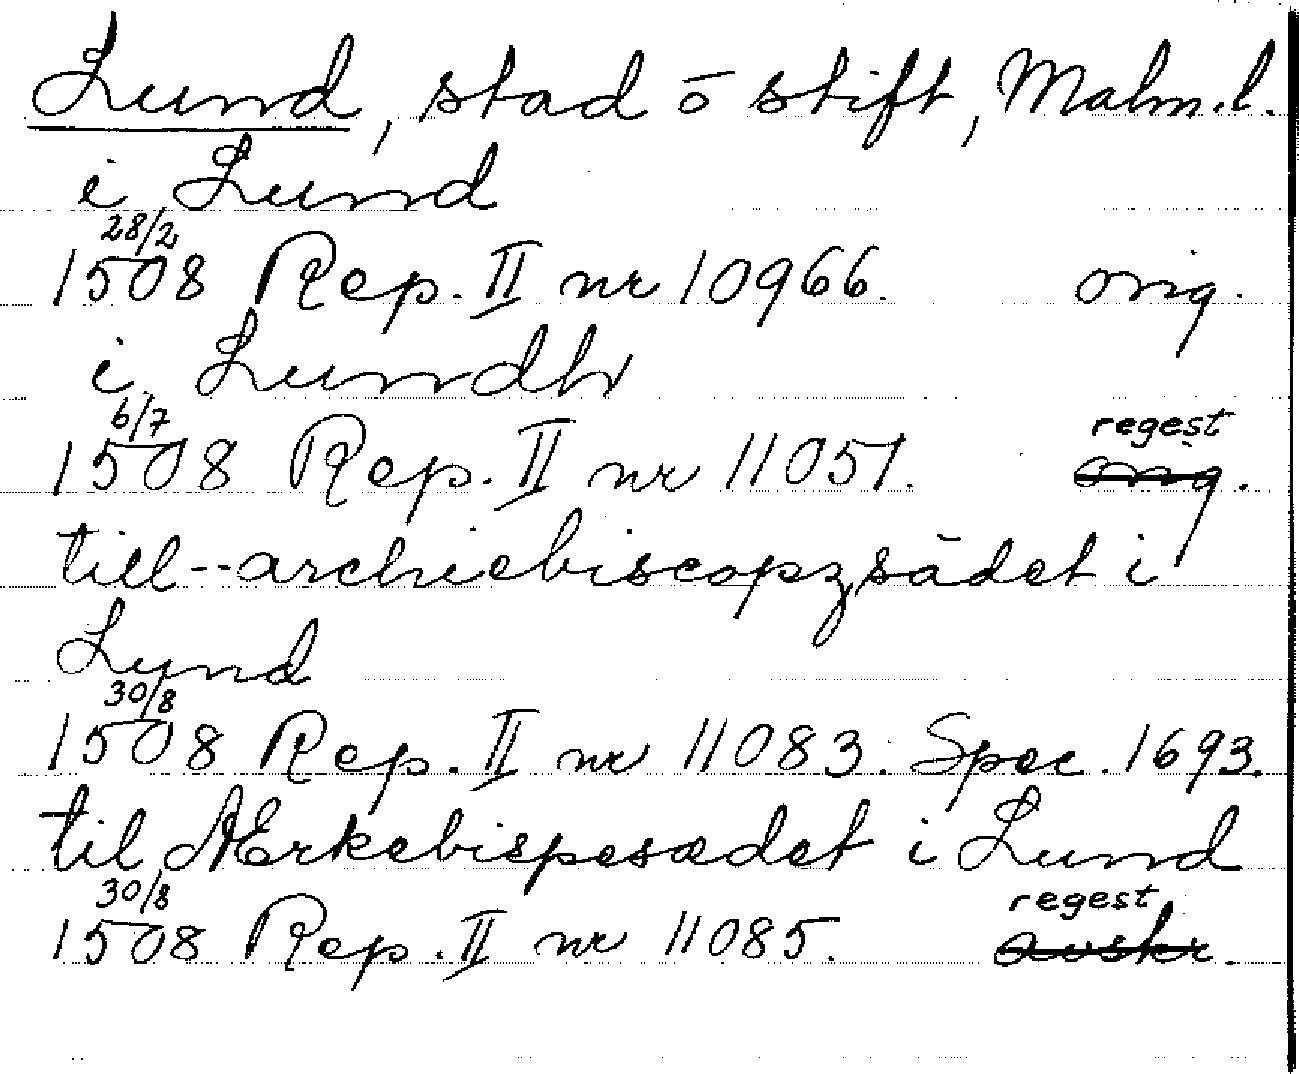 Lund, stad o stift, Malm.l.
i Lund
28/2
1508 Rep. II nr 10966. orig.
i Lundh
6/7 regest
1508 Rep. II nr 11051. orig.
till--archiebiscopz sädet i
Lund
30/8
1508 Rep. II nr 11083. Spec. 1693.
til Ærkebispesædet i Lund
30/8 regest
1508 Rep. II nr 11085. avskr.